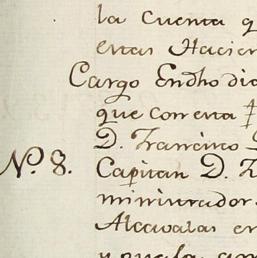 la Cuenta q
estas Hacien
Cargo En dho dia
que con esta
D. Francisco
N.º 8. Capitan D. F
ministrador
Alcavalas en